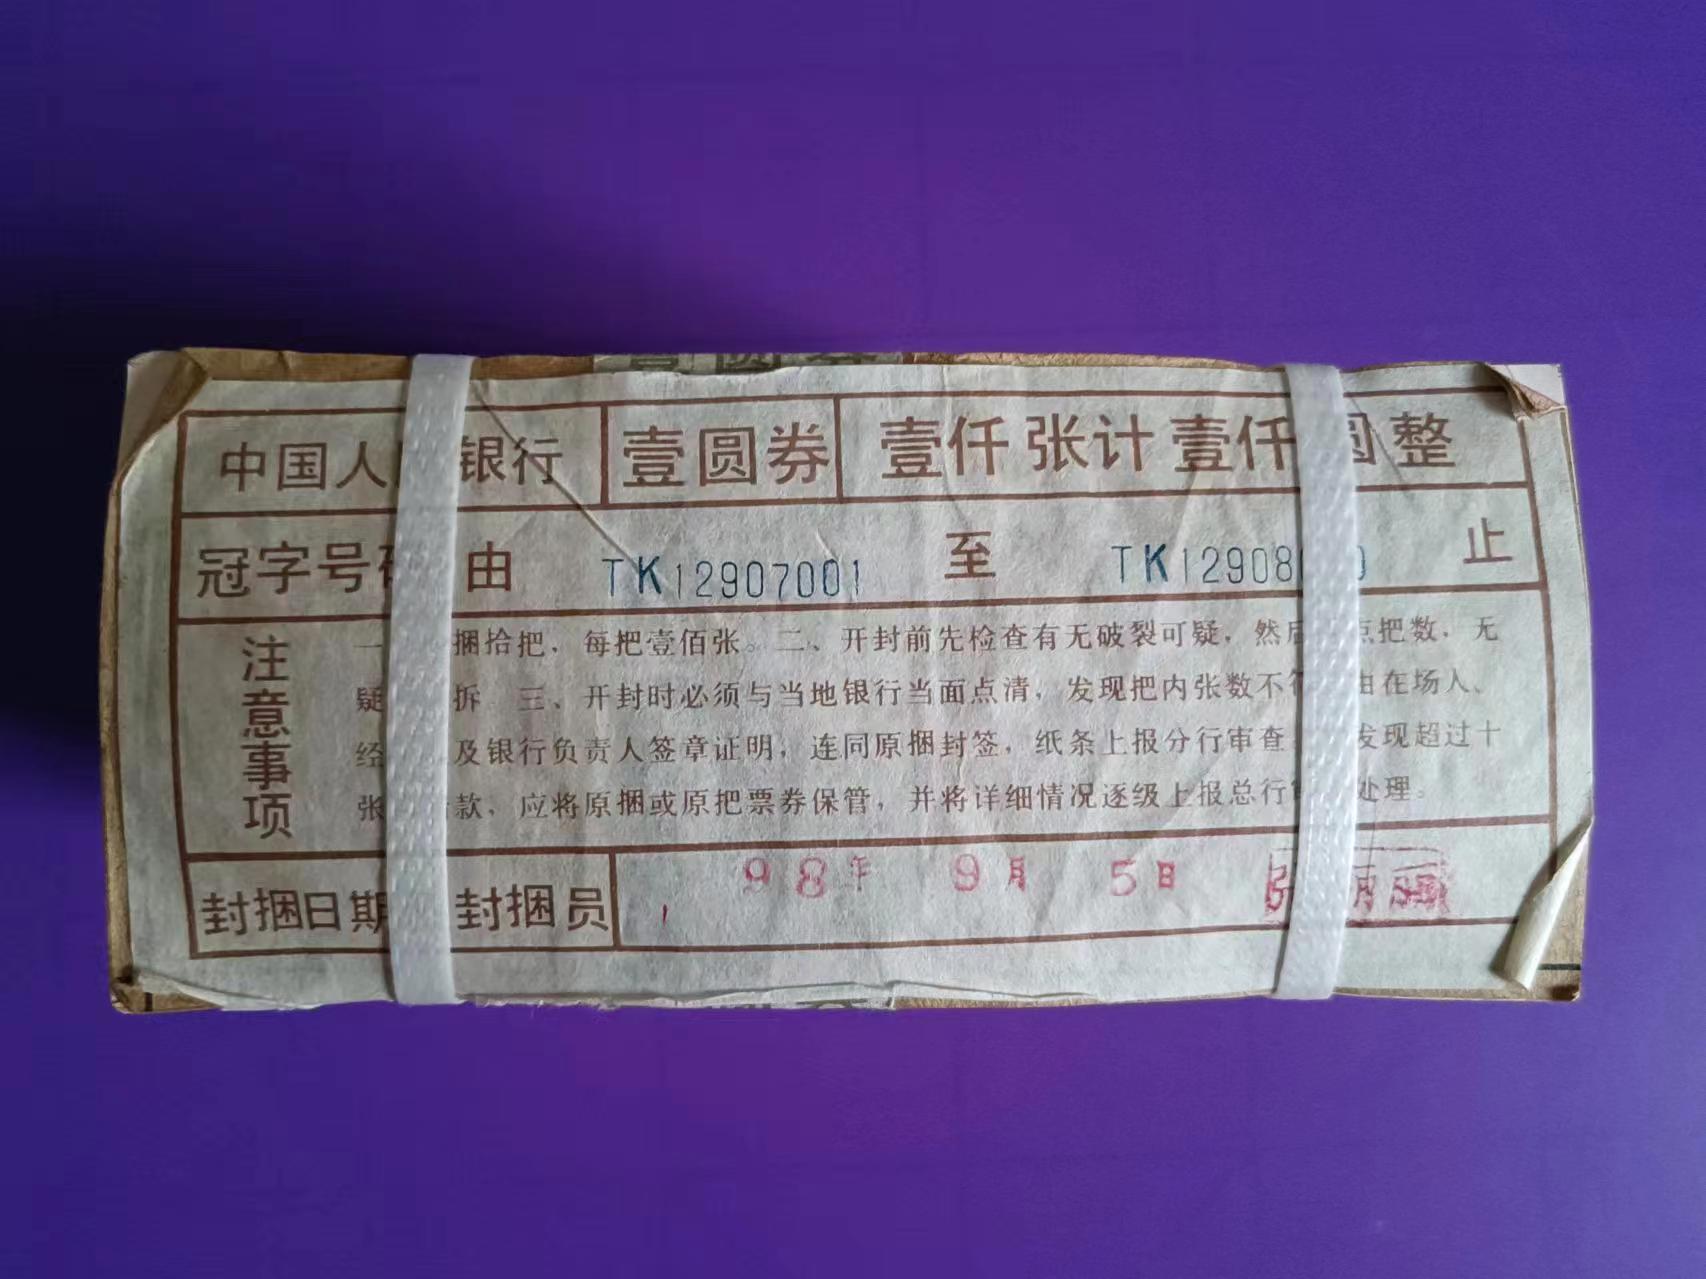 壹圆券
中国人 银行 壹圆券 壹仟张计壹仟圆整
冠字号码 由 TK12907001 至 TK12908 0 止
注意事项
一 捆拾把，每把壹佰张。二、开封前先检查有无破裂可疑，然后 点把数，无
疑 拆 三、开封时必须与当地银行当面点清，发现把内张数不符 由在场人、
经 及银行负责人签章证明，连同原捆封签，纸条上报分行审查 发现超过十
张 款，应将原捆或原把票券保管，并将详细情况逐级上报总行 处理。
封捆日期 封捆员 98年 9月 5日